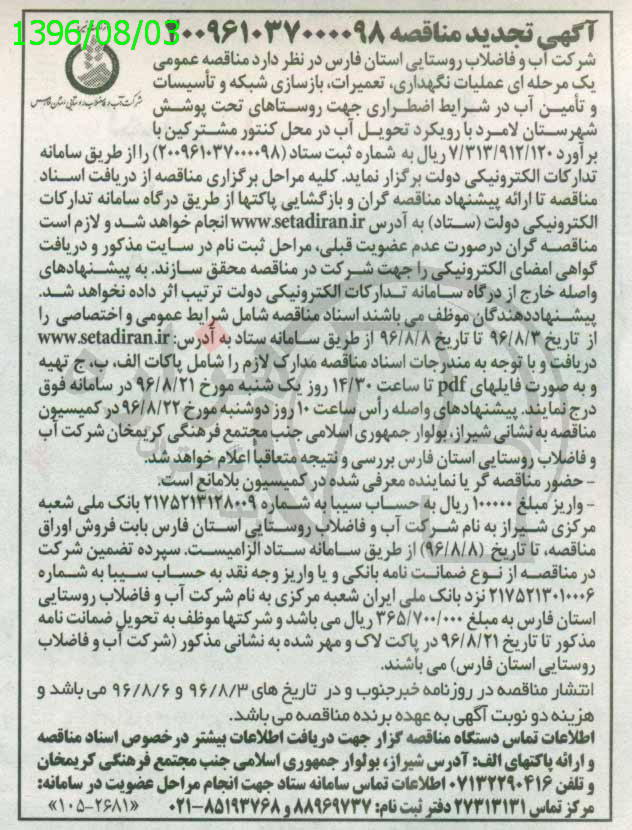 1396/08/03
آگهی تجدید مناقصه ۲۰۰۹۶۱۰۳۷۰۰۰۰۰۹۸
شرکت آب و فاضلاب روستایی استان فارس
شرکت آب و فاضلاب روستایی استان فارس در نظر دارد مناقصه عمومی
یک مرحله ای عملیات نگهداری، تعمیرات، بازسازی شبکه و تأسیسات
و تأمین آب در شرایط اضطراری جهت روستاهای تحت پوشش
شهرستان لامرد با رویکرد تحویل آب در محل کنتور مشترکین با
برآورد ۷/۳۱۳/۹۱۲/۱۲۰ ریال به شماره ثبت ستاد (۲۰۰۹۶۱۰۳۷۰۰۰۰۰۹۸) را از طریق سامانه
تدارکات الکترونیکی دولت برگزار نماید. کلیه مراحل برگزاری مناقصه از دریافت اسناد
مناقصه تا ارائه پیشنهاد مناقصه گران و بازگشایی پاکتها از طریق درگاه سامانه تدارکات
الکترونیکی دولت (ستاد) به آدرس www.setadiran.ir انجام خواهد شد و لازم است
مناقصه گران درصورت عدم عضویت قبلی، مراحل ثبت نام در سایت مذکور و دریافت
گواهی امضای الکترونیکی را جهت شرکت در مناقصه محقق سازند. به پیشنهادهای
واصله خارج از درگاه سامانه تدارکات الکترونیکی دولت ترتیب اثر داده نخواهد شد.
پیشنهاددهندگان موظف می باشند اسناد مناقصه شامل شرایط عمومی و اختصاصی را
از تاریخ ۹۶/۸/۳ تا تاریخ ۹۶/۸/۸ از طریق سامانه ستاد به آدرس: www.setadiran.ir
دریافت و با توجه به مندرجات اسناد مناقصه مدارک لازم را شامل پاکات الف، ب، ج تهیه
و به صورت فایلهای pdf تا ساعت ۱۴/۳۰ روز یک شنبه مورخ ۹۶/۸/۲۱ در سامانه فوق
درج نمایند. پیشنهادهای واصله رأس ساعت ۱۰ روز دوشنبه مورخ ۹۶/۸/۲۲ در کمیسیون
مناقصه به نشانی شیراز، بولوار جمهوری اسلامی جنب مجتمع فرهنگی کریمخان شرکت آب
و فاضلاب روستایی استان فارس بررسی و نتیجه متعاقباً اعلام خواهد شد.
- حضور مناقصه گر یا نماینده معرفی شده در کمیسیون بلامانع است.
- واریز مبلغ ۱۰۰۰۰۰ ریال به حساب سیبا به شماره ۲۱۷۵۲۱۳۱۲۸۰۰۹ بانک ملی شعبه
مرکزی شیراز به نام شرکت آب و فاضلاب روستایی استان فارس بابت فروش اوراق
مناقصه، تا تاریخ (۹۶/۸/۸) از طریق سامانه ستاد الزامیست. سپرده تضمین شرکت
در مناقصه از نوع ضمانت نامه بانکی و یا واریز وجه نقد به حساب سیبا به شماره
۲۱۷۵۲۱۳۰۱۰۰۰۶ نزد بانک ملی ایران شعبه مرکزی به نام شرکت آب و فاضلاب روستایی
استان فارس به مبلغ ۳۶۵/۷۰۰/۰۰۰ ریال می باشد و شرکتها موظف به تحویل ضمانت نامه
مذکور تا تاریخ ۹۶/۸/۲۱ در پاکت لاک و مهر شده به نشانی مذکور (شرکت آب و فاضلاب
روستایی استان فارس) می باشند.
انتشار مناقصه در روزنامه خبرجنوب و در تاریخ های ۹۶/۸/۳ و ۹۶/۸/۶ می باشد و
هزینه دو نوبت آگهی به عهده برنده مناقصه می باشد.
اطلاعات تماس دستگاه مناقصه گزار جهت دریافت اطلاعات بیشتر درخصوص اسناد مناقصه
و ارائه پاکتهای الف: آدرس شیراز، بولوار جمهوری اسلامی جنب مجتمع فرهنگی کریمخان
و تلفن ۰۷۱۳۲۲۹۰۴۱۶ اطلاعات تماس سامانه ستاد جهت انجام مراحل عضویت در سامانه:
مرکز تماس ۲۷۳۱۳۱۳۱ دفتر ثبت نام: ۸۸۹۶۹۷۳۷ و ۸۵۱۹۳۷۶۸-۰۲۱ «۱۰۵-۲۶۸۱»